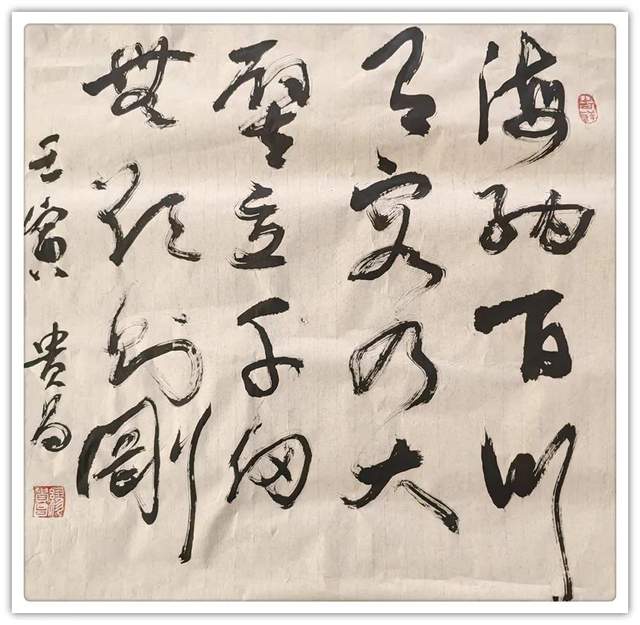 海納百川
有容乃大
壁立千仞
無欲則剛
壬寅 贵昌